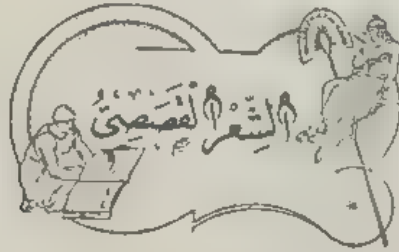 الشِّعْرُ القَصَصِيّ